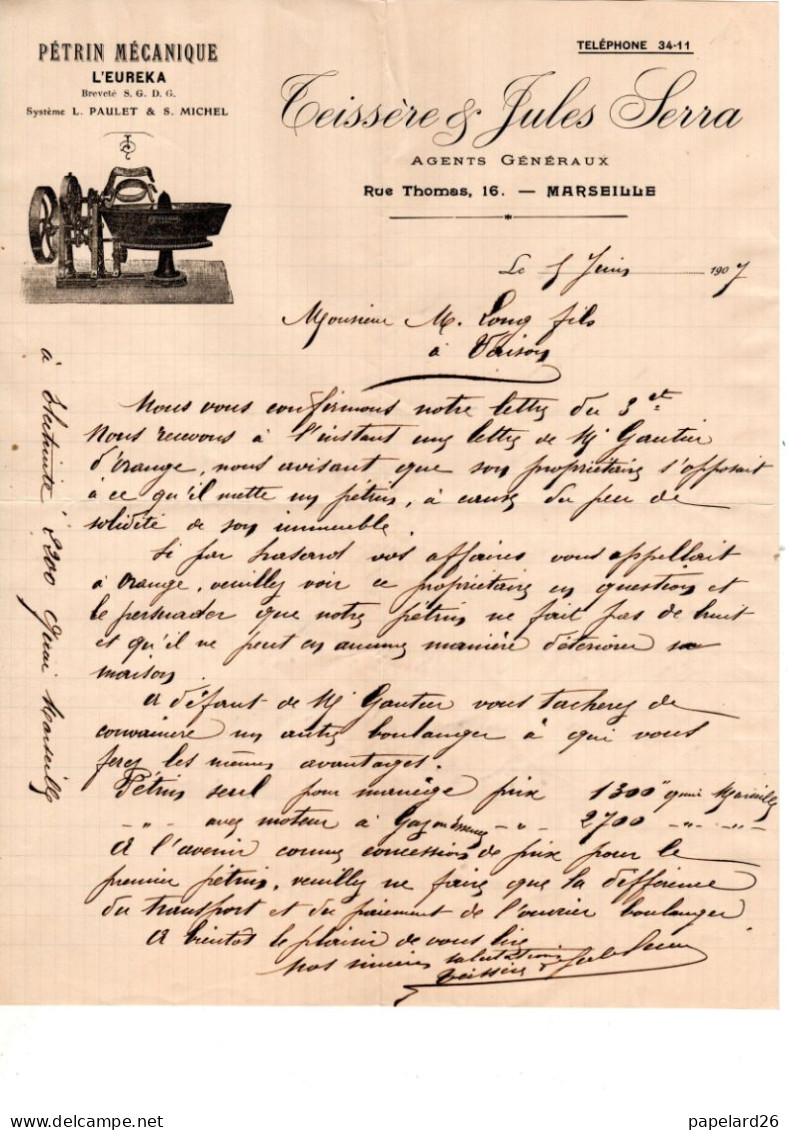 PÉTRIN MÉCANIQUE
L'EUREKA
Breveté S. G. D. G.
Système L. PAULET & S. MICHEL
TELÉPHONE 34-11
Teissère & Jules Serra
AGENTS GÉNÉRAUX
Rue Thomas, 16. — MARSEILLE
Le 5 Juin 1907
Monsieur M. Long fils
à Vaison
Nous vous confirmons notre lettre du 3 et
Nous recevons à l'instant une lettre de Mr Gautier
d'Orange, nous avisant que son propriétaire s'opposait
à ce qu'il mette un pétrin, à cause du peu de
solidité de son immeuble.
Si par hasard vos affaires vous appellait
à Orange, veuillez voir ce propriétaire en question et
le persuader que notre pétrin ne fait pas de bruit
et qu'il ne peut en aucune manière déteriorer sa
maison.
A défaut de Mr Gautier vous tacherez de
convaincre un autre boulanger à qui vous
ferez les mêmes avantages.
Pétrin seul pour manège prix 1300" quai Marseille
-"- avec moteur à Gaz ou essence -"- 2700 -"- -"-
A l'avenir comme concession de prix pour le
premier pétrin, veuillez ne faire que la différence
du transport et du paiement de l'ouvrier boulanger
A bientot le plaisir de vous lire
Nos sincères salutations
Teissère & Jules Serra
à électricité 2200 quai Marseille
papelard26